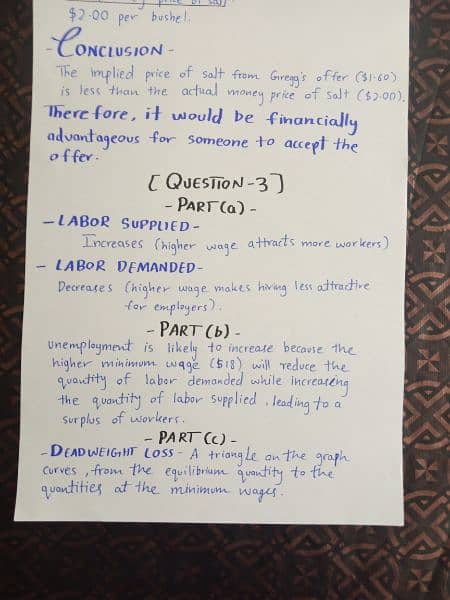 price of salt
$2.00 per bushel.
- CONCLUSION -
The implied price of salt from Gregg's offer ($1.60)
is less than the actual money price of salt ($2.00).
Therefore, it would be financially
advantageous for someone to accept the
offer.
[ QUESTION-3 ]
- PART (a) -
- LABOR SUPPLIED -
Increases (higher wage attracts more workers)
- LABOR DEMANDED -
Decreases (higher wage makes hiring less attractive
for employers).
- PART (b) -
Unemployment is likely to increase because the
higher minimum wage ($18) will reduce the
quantity of labor demanded while increaseing
the quantity of labor supplied, leading to a
surplus of workers.
- PART (c) -
- DEADWEIGHT LOSS - A triangle on the graph
curves, from the equilibrium quantity to the
quantities at the minimum wages.